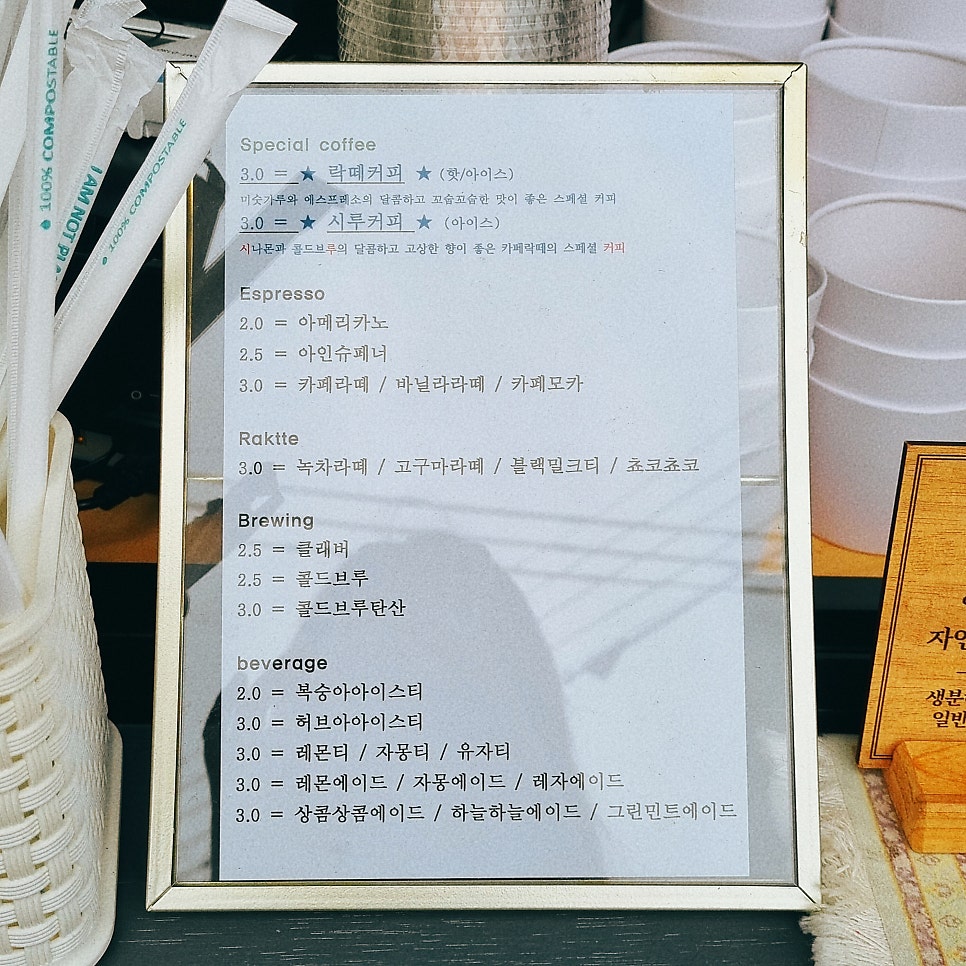 100% COMPOSTABLE
I AM NOT PLA
100% COMPOSTABLE
Special coffee
3.0 = ★ 락떼커피 ★ (핫/아이스)
미숫가루와 에스프레소의 달콤하고 꼬숩꼬슬한 맛이 좋은 스페셜 커피
3.0 = ★ 시루커피 ★ (아이스)
시나몬과 콜드브루의 달콤하고 고상한 향이 좋은 카페락떼의 스페셜 커피
Espresso
2.0 = 아메리카노
2.5 = 아인슈페너
3.0 = 카페라떼 / 바닐라라떼 / 카페모카
Raktte
3.0 = 녹차라떼 / 고구마라떼 / 블랙밀크티 / 쵸코쵸코
Brewing
2.5 = 클래버
2.5 = 콜드브루
3.0 = 콜드브루탄산
beverage
2.0 = 복숭아아이스티
3.0 = 허브아아이스티
3.0 = 레몬티 / 자몽티 / 유자티
3.0 = 레몬에이드 / 자몽에이드 / 레자에이드
3.0 = 상콤상콤에이드 / 하늘하늘에이드 / 그린민트에이드
자연
생분
일반